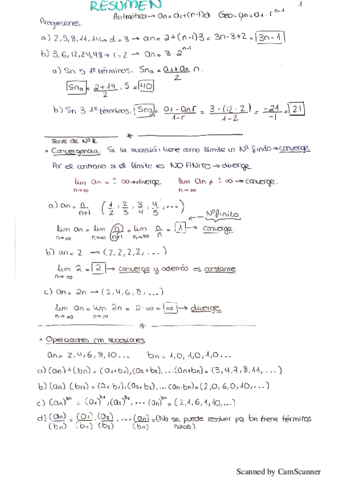 RESUMEN
Progresiones. Aritmética → an = a1 + (n-1)d Geo. → an = a1 · r^n-1 1
a) 2, 5, 8, 11, 14 → d = 3 → an = 2 + (n-1)3 = 3n - 3 + 2 = 3n - 1
b) 3, 6, 12, 24, 48 → r = 2 → an = 3 · 2^n-1
a) Sn 5 1º términos. Sna = a1 + an / 2 · n
Sna = 2 + 14 / 2 · 5 = 40
b) Sn 3 1º términos. Sng = a1 - an r / 1 - r = 3 - (12 · 2) / 1 - 2 = -21 / -1 = 21
Serie de Nº R
• Convergencia: Si la sucesión tiene como límite un Nº finito → converge
Por el contrario si el límite es NO FINITO → diverge
lim an = ± ∞ → diverge lim an ≠ ± ∞ → converge.
n→∞ n→∞
a) an = n / n+1 (1/2, 2/3, 3/4, 4/5, ...)
Nº finito
lim an = lim n / n+1 = lim n / n = 1 → converge
n→∞ n→∞ n→∞
b) an = 2 → (2, 2, 2, 2, ...)
lim 2 = 2 → converge y además es constante
n→∞
c) an = 2n → (2, 4, 6, 8, ...)
lim an = lim 2n = 2 · ∞ = ∞ → diverge
n→∞ n→∞
• Operaciones con sucesiones
an = 2, 4, 6, 8, 10 ... bn = 1, 0, 1, 0, 1, 0 ...
a) (an) + (bn) = (a1 + b1), (a2 + b2), ... (an + bn) = (3, 4, 7, 8, 11, ...)
b) (an) (bn) = (a1 · b1), (a2 · b2), ... (an · bn) = (2, 0, 6, 0, 10, ...)
c) (an)^bn = (a1)^b1, (a2)^b2, ... (an)^bn = (2, 1, 6, 1, 10, ...)
d) (an)/(bn) = (a1)/(b1), (a2)/(b2), ... (an)/(bn) = (No se puede resolver pq bn tiene términos
nulos).
Scanned by CamScanner